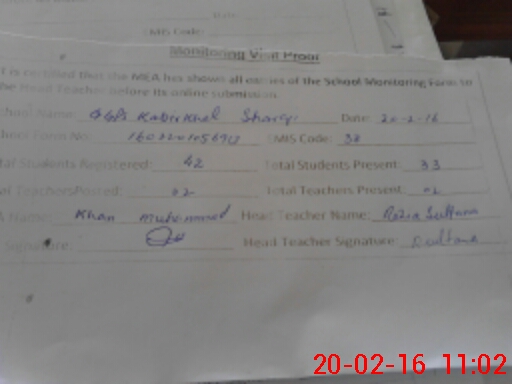 Date:
EMIS Code:
Monitoring Visit Proof
It is certified that the MEA has shown all entries of the School Monitoring Form to
the Head Teacher before its online submission.
School Name GGPS Kabir Khel Sharqi Date: 20-2-16
Form No: EMIS Code: 38
Total Students Registered: 42 Total Students Present: 33
Total Teachers Posted: 02 Total Teachers Present: 02
Name: Khan Muhammad Head Teacher Name: Razia Sultana
Signature: Head Teacher Signature: RSultana
20-02-16 11:02